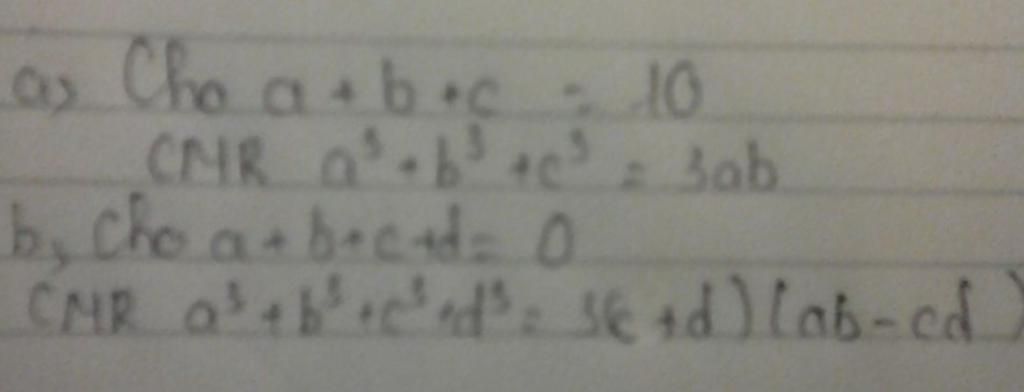 a, Cho a + b + c = 10
CMR a³ + b³ + c³ = 3ab
b, Cho a + b + c + d = 0
CMR a³ + b³ + c³ + d³ = 3(c + d)(ab - cd)